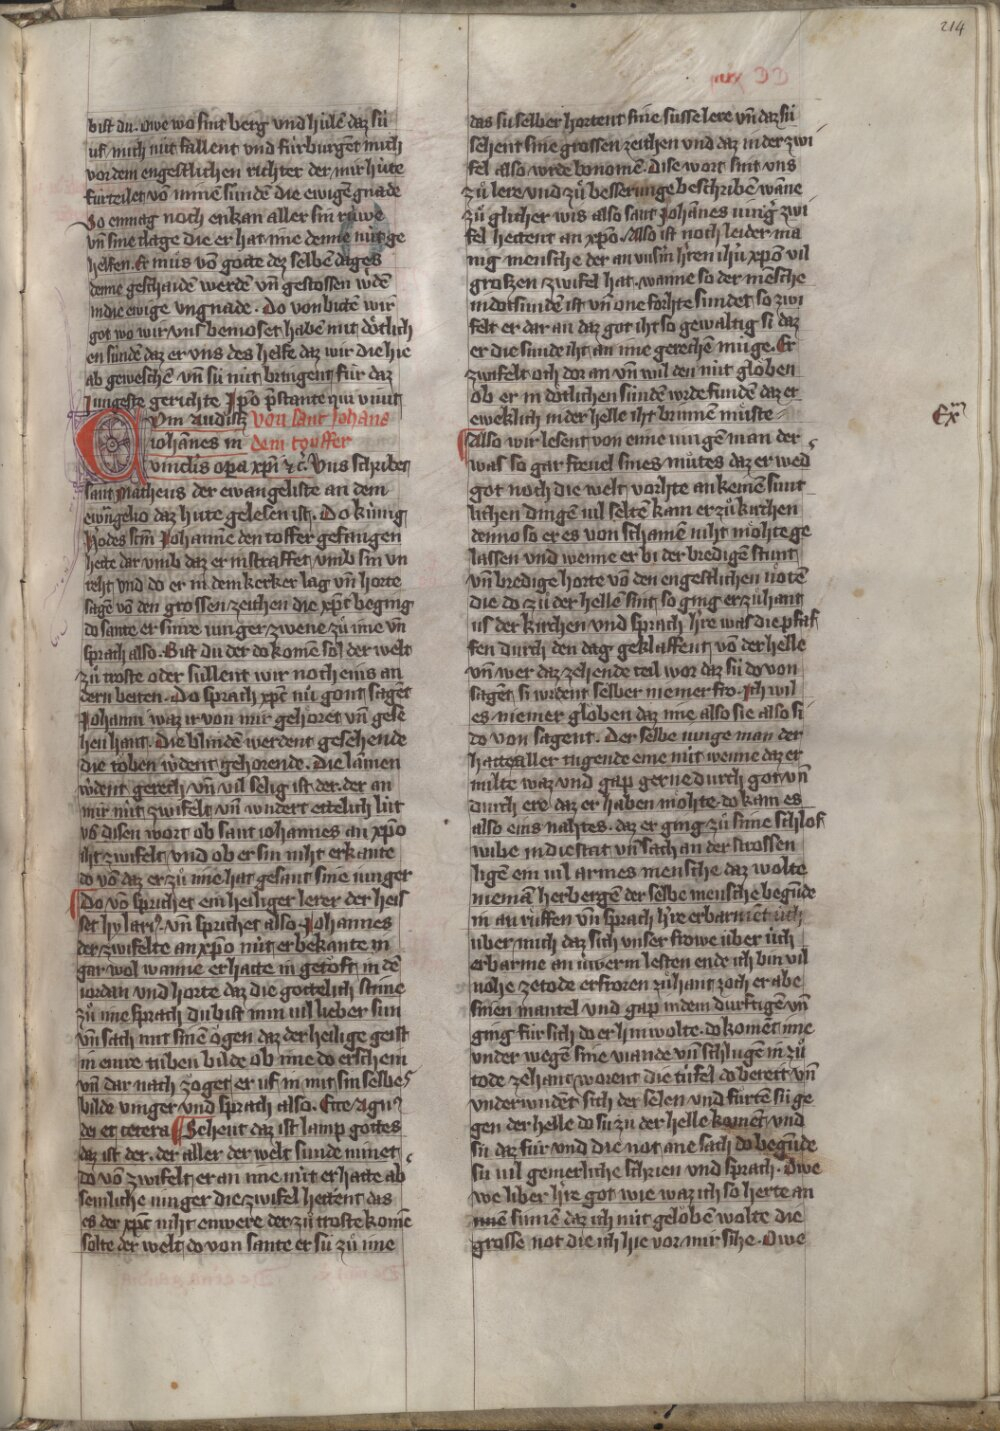 214
bist du. Owe wo sint berg vnd húlē daz sú
uf mich nút fallent vnd fúrburgent mich
vor dem engestlichen richter der mir húte
fúrteilet vō minē súndē die ewigē gnade
So enmag noch enkan aller sin rúwe
vn̄ sine clage die er hat ime denne nút ge
helfen. Er můs vō gotte dez selbē dages
denne gescheidē werdē vn̄ gestossen w̄dē
in die ewige vngnade. Do von bittē wir
got wo wir vns bemoset habē mit dötlich
en súndē daz er vns des helfe daz wir die hie
ab geweschē vn̄ sú nút bringent fúr daz
jungeste gerichte Ip̄o p̄stante qui viuit
Cvm audisset von sant Johans
iohānes in dem töuffer
vinclis op̄a xp̄i ⁊ c̄. Vns schribet
sant Matheus der ewangeliste an dem
ewāgelio daz hute gelesen ist. Do kúnig
Herodes sctm̄ Johannē den toffer gefangen
hette dar vmb daz er in straffet vmb sin vn
reht vnd do er in dem kerker lag vn̄ horte
sagē vō den grossen zeichen die xp̄c beging
do sante er sinre iunger zwene zů ime vn̄
sprach also. Bist du der do komē sol der welt
zů troste oder súllent wir noch eins an
dern beiten. Do sprach xp̄c nů gont sagēt
Johanni waz ir von mir gehöret vn̄ gese
hen hant. Die blindē werdent gesehende
die toben w̄dent gehorende. Die lamen
w̄dent gerech vn̄ vil selig ist der. der an
mir nút zwifelt vn̄ wndert ettelich lút
vō disen wort ob sant iohannes an xp̄o
iht zwifelt vnd ob er sin niht erkante
do vō daz er zů ime hat gesant sine iunger
Do vō sprichet ein heiliger lerer der heis
set hylariꝰ. vn̄ sprichet also. Johannes
der zwifelte an xp̄o nút er bekante in
gar wol wanne er hatte in getoft in dē
iordan vnd horte daz die gottelich stime
zů ime sprach du bist min vil lieber sun
vn̄ sach mit sinē ögen daz der heilige geist
in einre tuben bilde ob ime do erschein
vn̄ dar nach zoget er uf in mit sin selbes
bilde vinger vnd sprach also. Ecce agnꝰ
dei et cetera Sehent daz ist lamp gottes
daz ist der. der aller der welt súnde nimet
do vō zwifelt er an ime nút er hatte ab
semliche iunger die zwifel hettent das
es der xp̄c niht enwere der zů troste komē
solte der welt do von sante er sú zů ime
das sú selber hortent sine susse lere vn̄ daz sú
sehent sine grossen zeichen vnd daz in der zwi
fel also wrde benomē. Dise wort sint vns
zů lere vnd zů besserunge beschribē wāne
zů glicher wis also sant Johānes iunḡ zwi
fel hettent an xp̄o. Also ist noch leider ma
nig mensche der an vnsm̄ h̄ren ihū xp̄o vil
grossen zwifel hat. wanne so der mēsche
in dotsúndē ist vn̄ one forhte súndet so zwi
felt er dar an daz got iht so gewaltig si daz
er die súnde iht an ime gerechē múge. Er
zwifelt och dor an vn̄ wil den nút globen
ob er in dötlichen súndē w̄de fundē daz er
eweklich in der helle iht brinnen muste
Also wir lesent von eime iungē man der
was so gar freuel sines můtes daz er wed̄
got noch die welt vorhte an keinē súnt
lichen dingē vil seltē kam er zů kirchen
denno so er es von schamē niht mohte ge
lassen vnd wenne er bi der bredigē stunt
vn̄ bredige horte vō den engestlichen nötē
die do zů der hellē sint so ging er zů hant
us der kirchen vnd sprach h̄re was die pfaf
fen durch den dag geklaffent vō der helle
vn̄ wer daz zehende teil wor daz sú do von
sagēt si wrdent selber niemer fro. Ich wil
es niemer globen daz ime also sie also si
do von sagent. Der selbe iunge man der
hatte aller tugende eine nút wenne daz er
milte waz vnd gap gerne durch got vn̄
durch ere daz er haben mohte. do kam es
also eins nahtes. daz er ging zů sime schlof
wibe in die stat vn̄ sach an der strossen
ligē ein vil armes mensche daz wolte
niemā herbergē der selbe mensche begūde
in an růffen vn̄ sprach h̄re erbarmet úch
vber mich daz sich vnser frowe úber úch
erbarme an úwerm lesten ende ich bin vil
nohe ze tode erfroren zů hant zoch er abe
sinen mantel vnd gap in dem durftigē vn̄
ging fúr sich do er hin wolte. do komēt ime
vnder wegē sine viande vn̄ schlugē in zů
tode zehant worent die túfel do bereit vn̄
vnderwindēt sich der selen vnd fůrtē sú ge
gen der helle do sú zů der helle komēt vnd
sú daz fúr vnd die not ane sach do begūde
sú vil gemerliche schrien vnd sprach. Owe
we lieber h̄re got wie waz ich so herte an
minē sinnē daz ich nút gelobē wolte die
grosse not die ich hie vor mir sihe. Owe
Ex̄